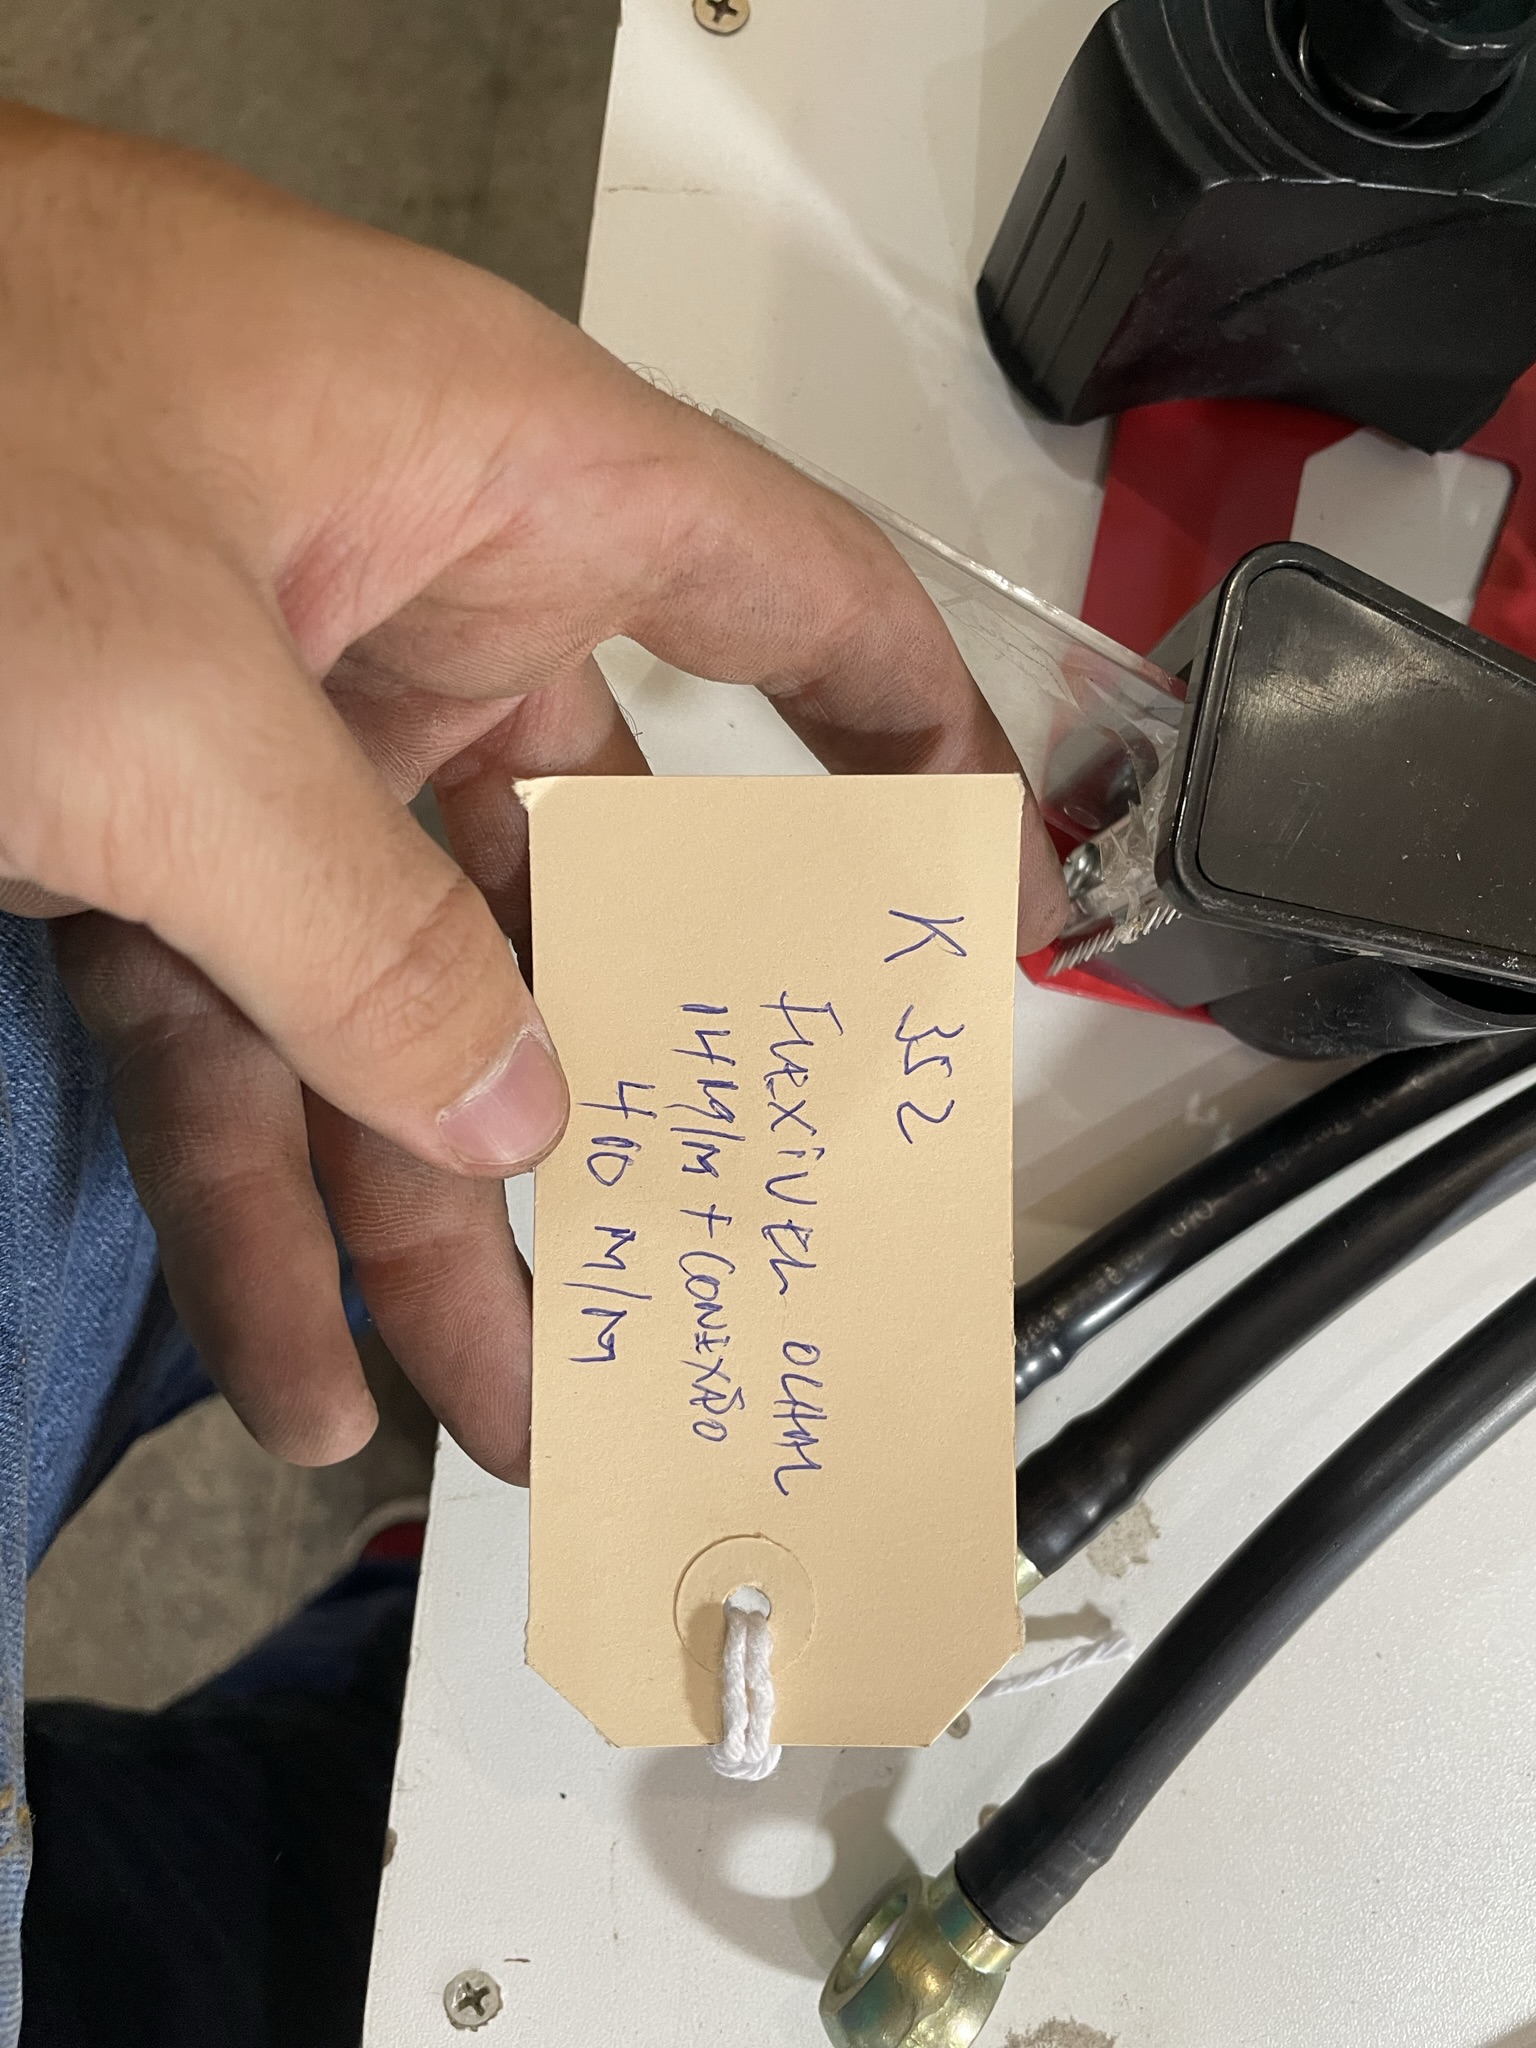 K 352
FLEXÍVEL OLHAL
14 M/M + CONEXÃO
400 M/M